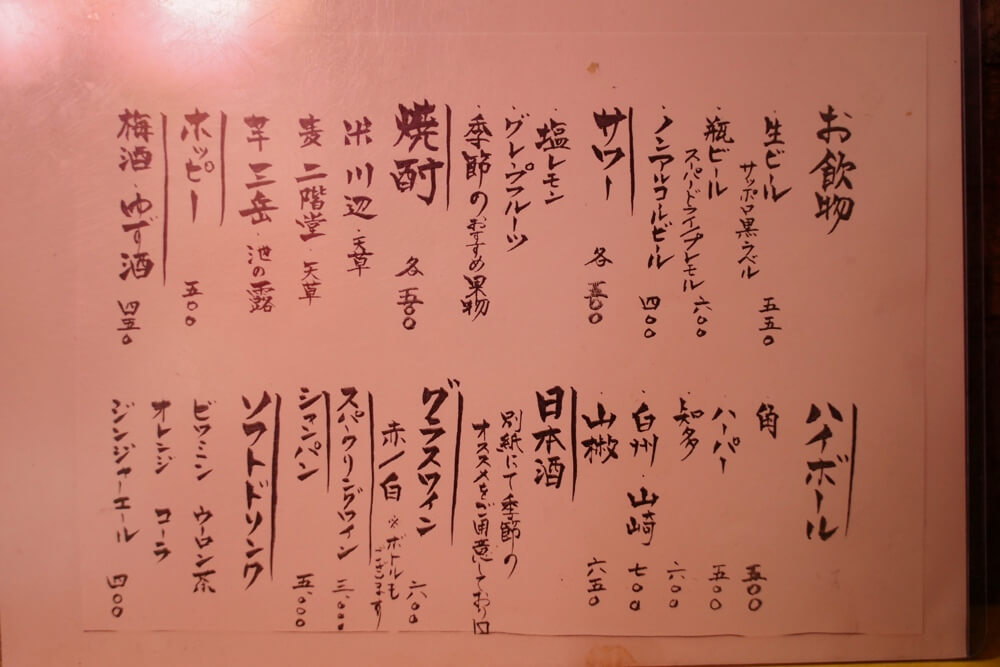 お飲物
・生ビール
サッポロ黒ラベル 五五〇
・瓶ビール
スーパードライ プレモル 六〇〇
・ノンアルコールビール 四〇〇
サワー 各 五〇〇
・塩レモン
・グレープフルーツ
・季節のおすすめ果物
焼酎 各 五〇〇
米 川辺・天草
麦 二階堂 天草
芋 三岳・池の露
ホッピー 五〇〇
梅酒・ゆず酒 四五〇
ハイボール
・角 五〇〇
・ハーパー 五〇〇
・知多 六〇〇
・白州・山崎 七〇〇
・山椒 六五〇
日本酒
別紙にて季節の
オススメをご用意しており〼
グラスワイン
赤/白 ※ボトルも
ございます 六〇〇
スパークリングワイン 三、〇〇〇
シャンパン 五、〇〇〇
ソフトドリンク
ビタミン ウーロン茶
オレンジ コーラ
ジンジャーエール 四〇〇